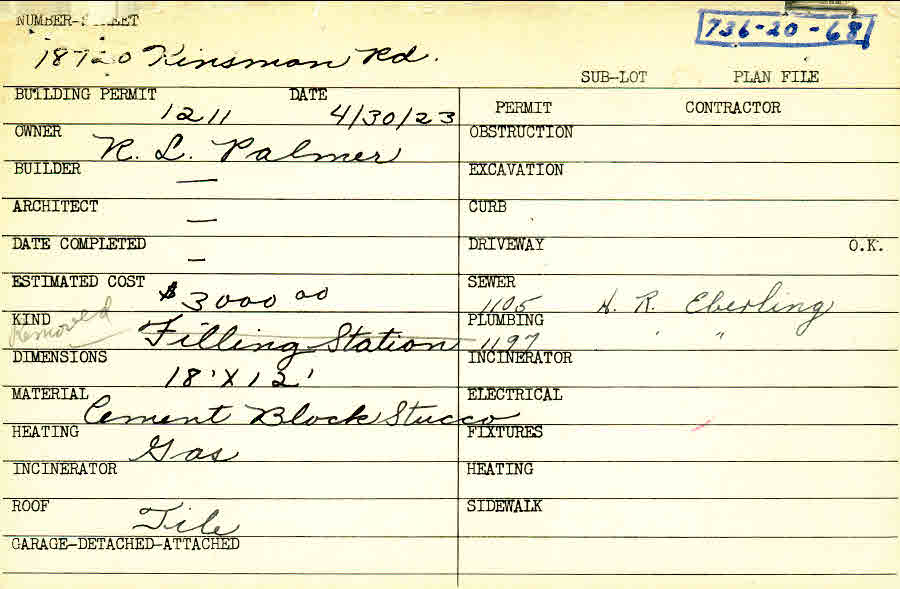 NUMBER-STREET
736-20-68
18720 Kinsman Rd.
SUB-LOT PLAN FILE
BUILDING PERMIT 1211 DATE 4/30/23
PERMIT CONTRACTOR
OWNER R. L. Palmer
OBSTRUCTION
BUILDER —
EXCAVATION
ARCHITECT —
CURB
DATE COMPLETED —
DRIVEWAY O.K.
ESTIMATED COST $3000 00
SEWER 1105 H. R. Eberling
KIND Removed Filling Station
PLUMBING 1197 " "
DIMENSIONS 18' X 12'
INCINERATOR
MATERIAL Cement Block Stucco
ELECTRICAL
HEATING Gas
FIXTURES
INCINERATOR
HEATING
ROOF Tile
SIDEWALK
GARAGE-DETACHED-ATTACHED